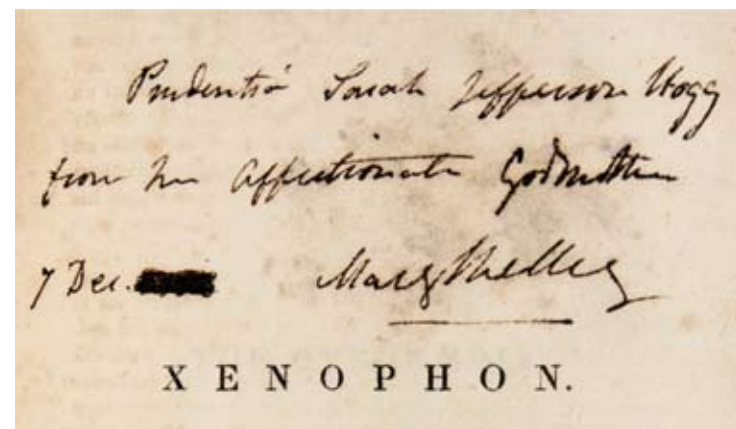 Prudentia Sarah Jefferson Hogg
from her affectionate Godmother
7 Dec.
Mary Shelley
XENOPHON.